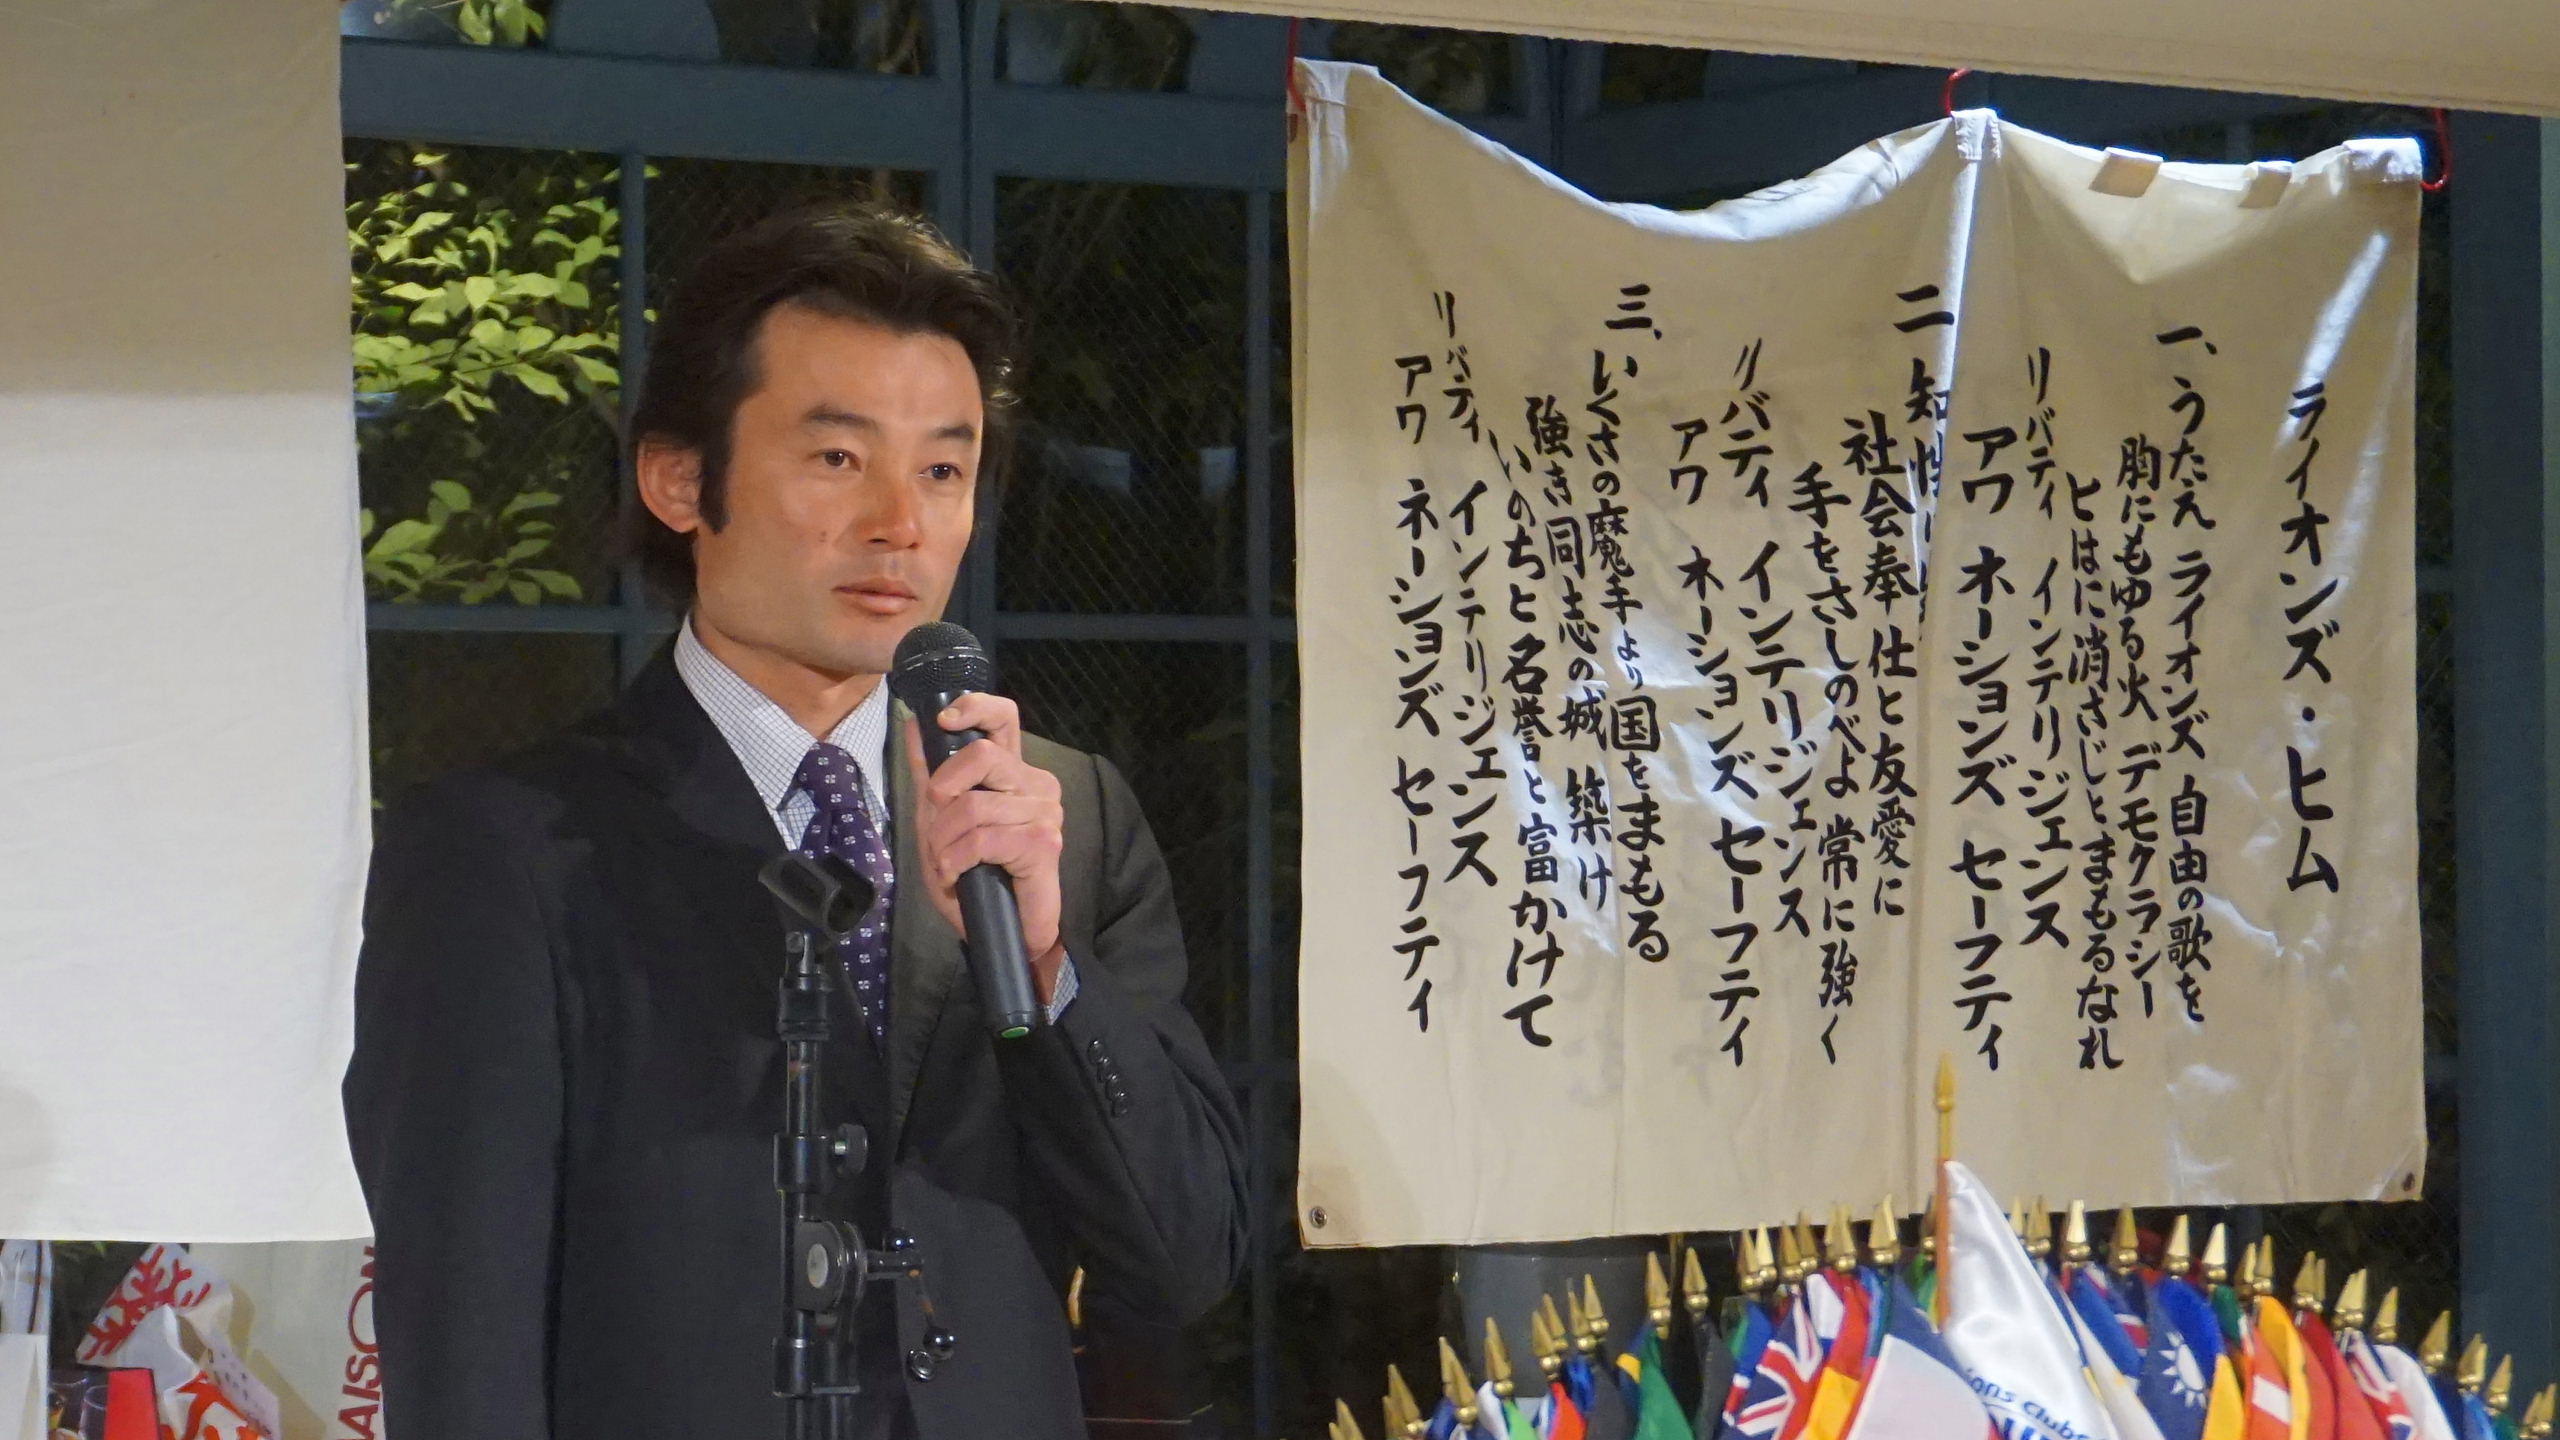 ライオンズ・ヒム
一、うたえ ライオンズ 自由の歌を
胸にもゆる火 デモクラシー
とはに消さじとまもるなれ
リバティ インテリジェンス
アワ ネーションズ セーフティ
二 知性
社会奉仕と友愛に
手をさしのべよ 常に強く
リバティ インテリジェンス
アワ ネーションズ セーフティ
三、いくさの魔手より国をまもる
強き同志の城 築け
いのちと名誉と富かけて
リバティ インテリジェンス
アワ ネーションズ セーフティ
ions Clubs
AISON